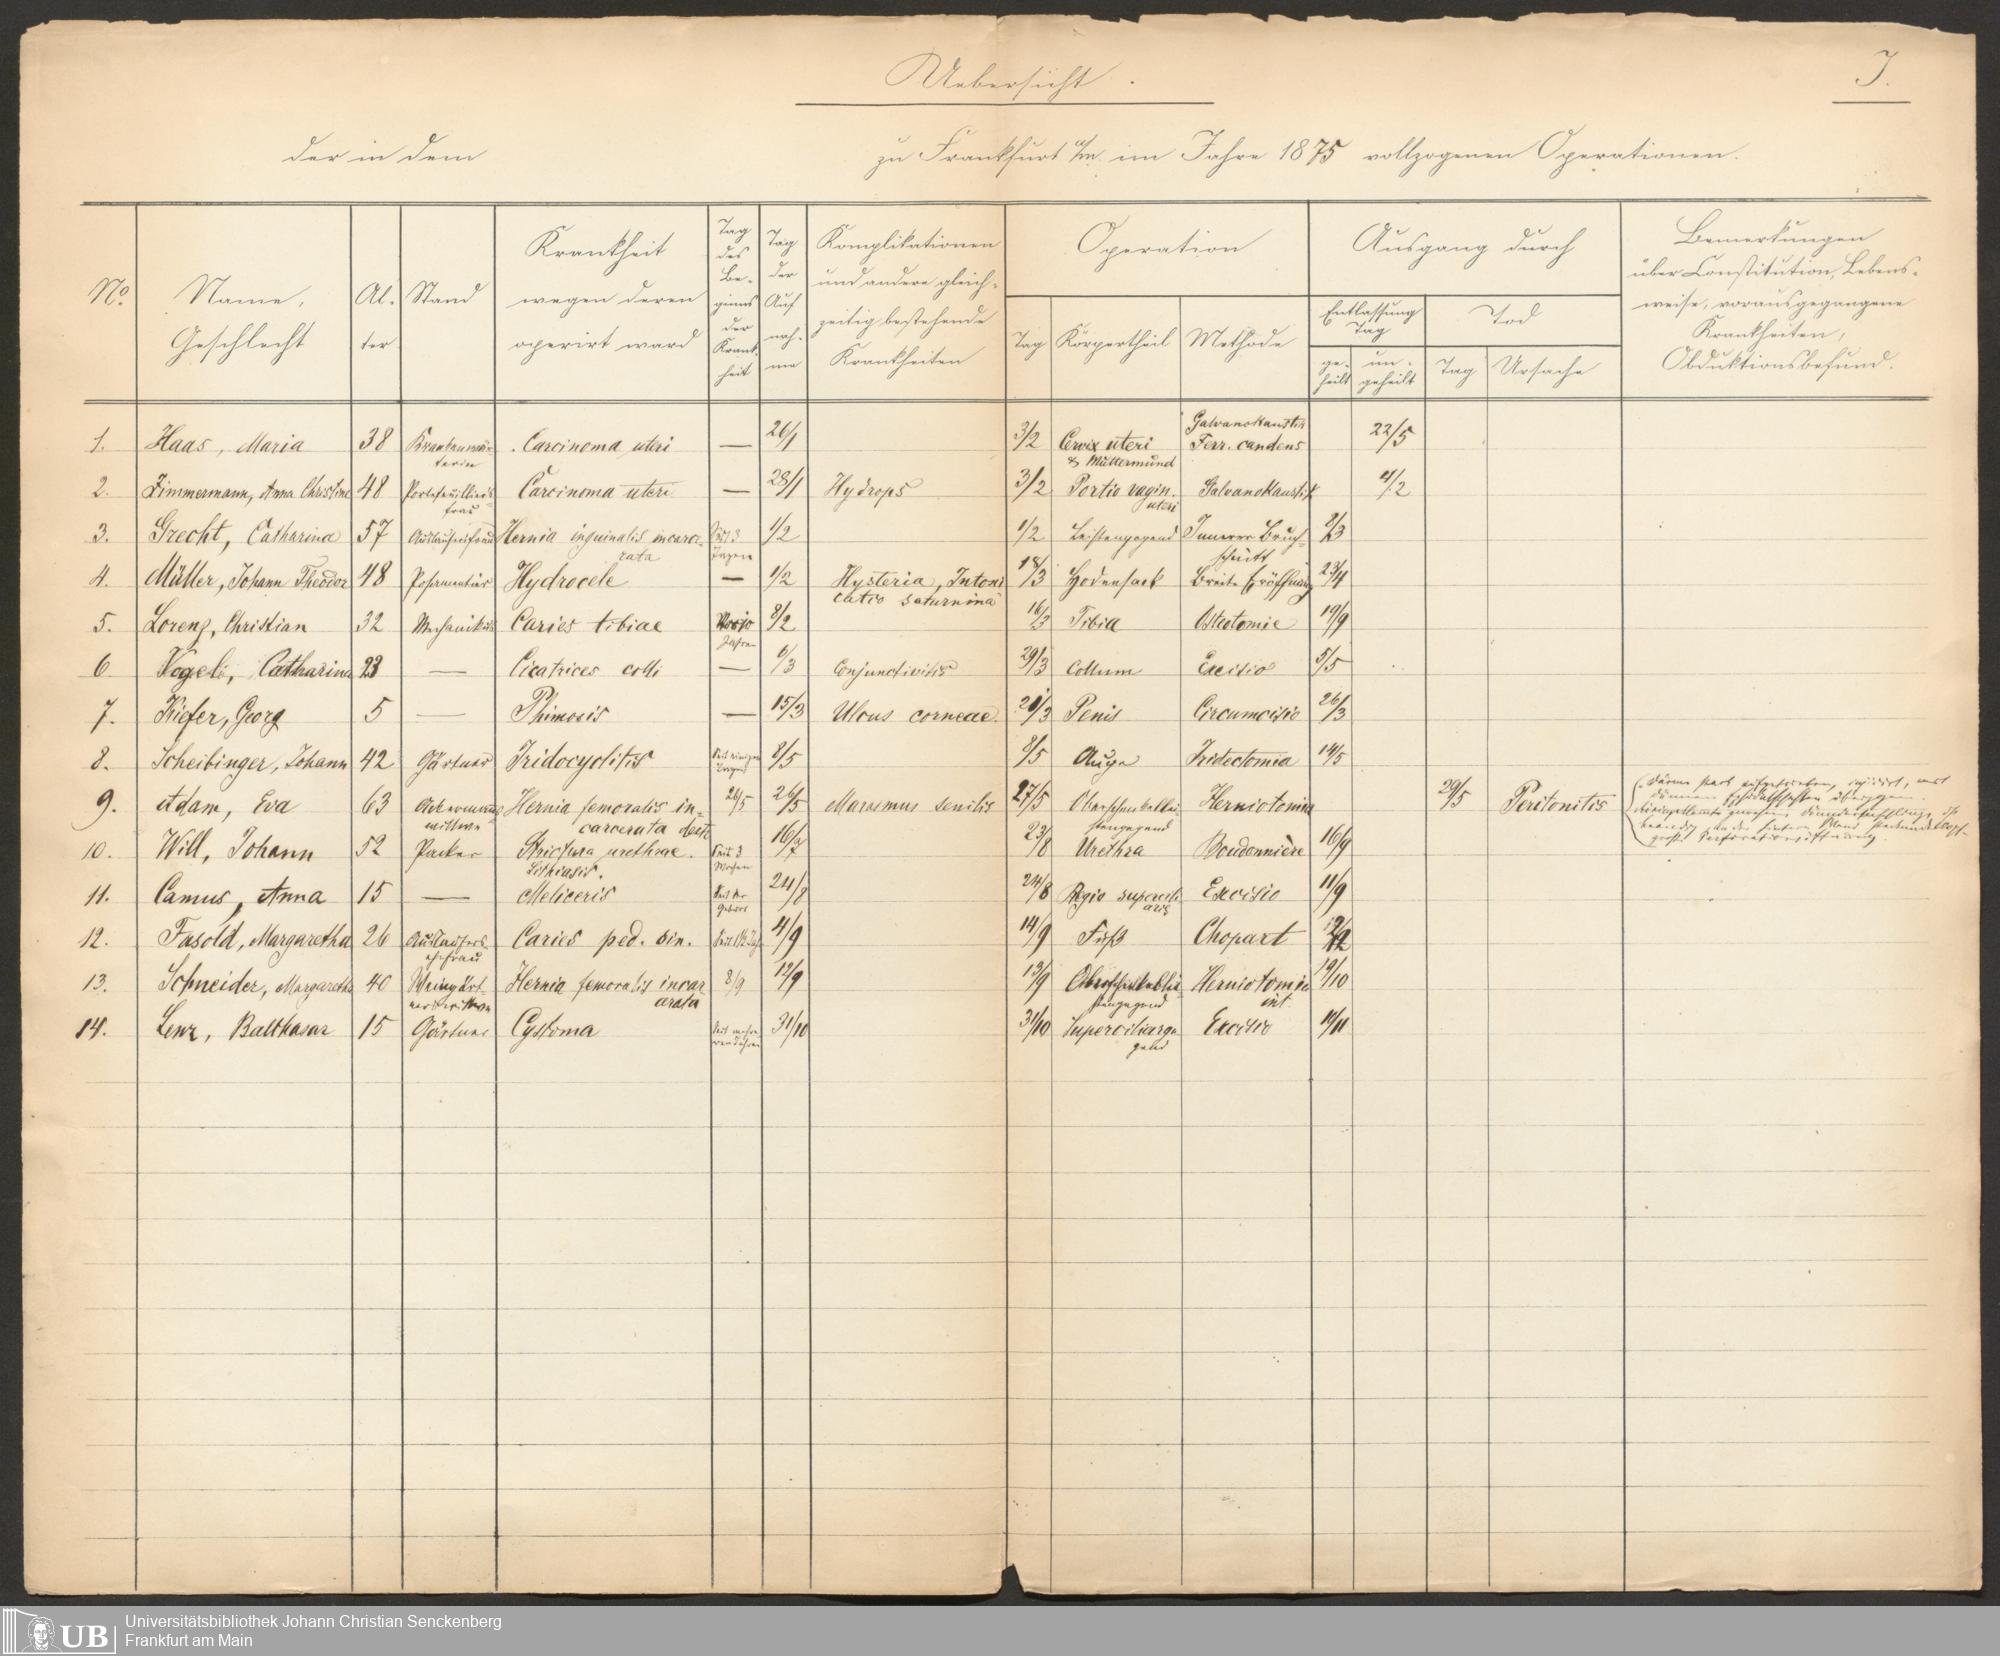 Uebersicht.
I.
der in dem zu Frankfurt a/m. im Jahre 1875 vollzogenen Operationen.
No. Name, Geschlecht Alter Stand Krankheit wegen deren operirt ward Tag des Beginnes der Krankheit Tag der Aufnahme Komplikationen und andere gleichzeitig bestehende Krankheiten Operation Ausgang durch Bemerkungen über Constitution, Lebensweise, vorausgegangene Krankheiten, Obduktionsbefund.
Tag Körpertheil Methode Entlassung Tag Tod
geheilt ungeheilt Tag Ursache
1. Haas, Maria 38 Krankenwärterin Carcinoma uteri — 26/1 3/2 Cervix uteri & Muttermund Galvanokaustik Ferr. candens 22/5
2. Zimmermann, Anna Christine 48 Portefeuillers frau Carcinoma uteri — 28/1 Hydrops 3/2 Portio vagin. uteri Galvanokaustik 4/2
3. Grecht, Catharina 57 Hernia inguinalis incarcerata Seit 3 Tagen 1/2 1/2 Leistengegend Innerer Bruchschnitt 8/3
4. Müller, Johann Theodor 48 Posamentier Hydrocele — 1/2 Hysteria, Intoxicatio saturnina 18/3 Hodensack Breite Eröffnung 23/4
5. Lorenz, Christian 32 Mechanikus Caries tibiae Vor 10 Jahren 8/2 16/3 Tibia Osteotomie 19/9
6. Vogel, Catharina 23 — Cicatrices colli — 6/3 Conjunctivitis 29/3 Collum Excisio 5/5
7. Kiefer, Georg 5 — Phimosis — 15/3 Ulcus corneae. 20/3 Penis Circumcisio 26/3
8. Scheibinger, Johann 42 Gärtner Iridocyclitis Seit einigen Tagen 8/5 8/5 Auge Iridectomia 14/5
9. Adam, Eva 63 Ackermanns wittwe Hernia femoralis incarcerata dextr 26/5 26/5 Marasmus senilis 27/5 Oberschenkelleistengegend Herniotomia 29/5 Peritonitis
10. Will, Johann 52 Packer Strictura urethrae. Lithiasis. Seit 3 Wochen 16/7 23/8 Urethra Boudonnière 16/9
11. Camus, Anna 15 — Meliceris Seit der Geburt 24/8 24/8 Regio superciliaris Excisio 11/9
12. Fasold, Margaretha 26 Auslaufers ehefrau Caries ped. sin. Seit 1½ Jahr 4/9 14/9 Fuß Chopart
13. Schneider, Margaretha 40 Weingärtnerswittwe Hernia femoralis incarcerata 8/9 12/9 13/9 Oberschenkelleistengegend Herniotomia int. 19/10
14. Lenz, Balthasar 15 Gärtner Cystoma Seit mehreren Jahren 31/10 31/10 Superciliargegend Excisio 14/11
UB
Universitätsbibliothek Johann Christian Senckenberg
Frankfurt am Main